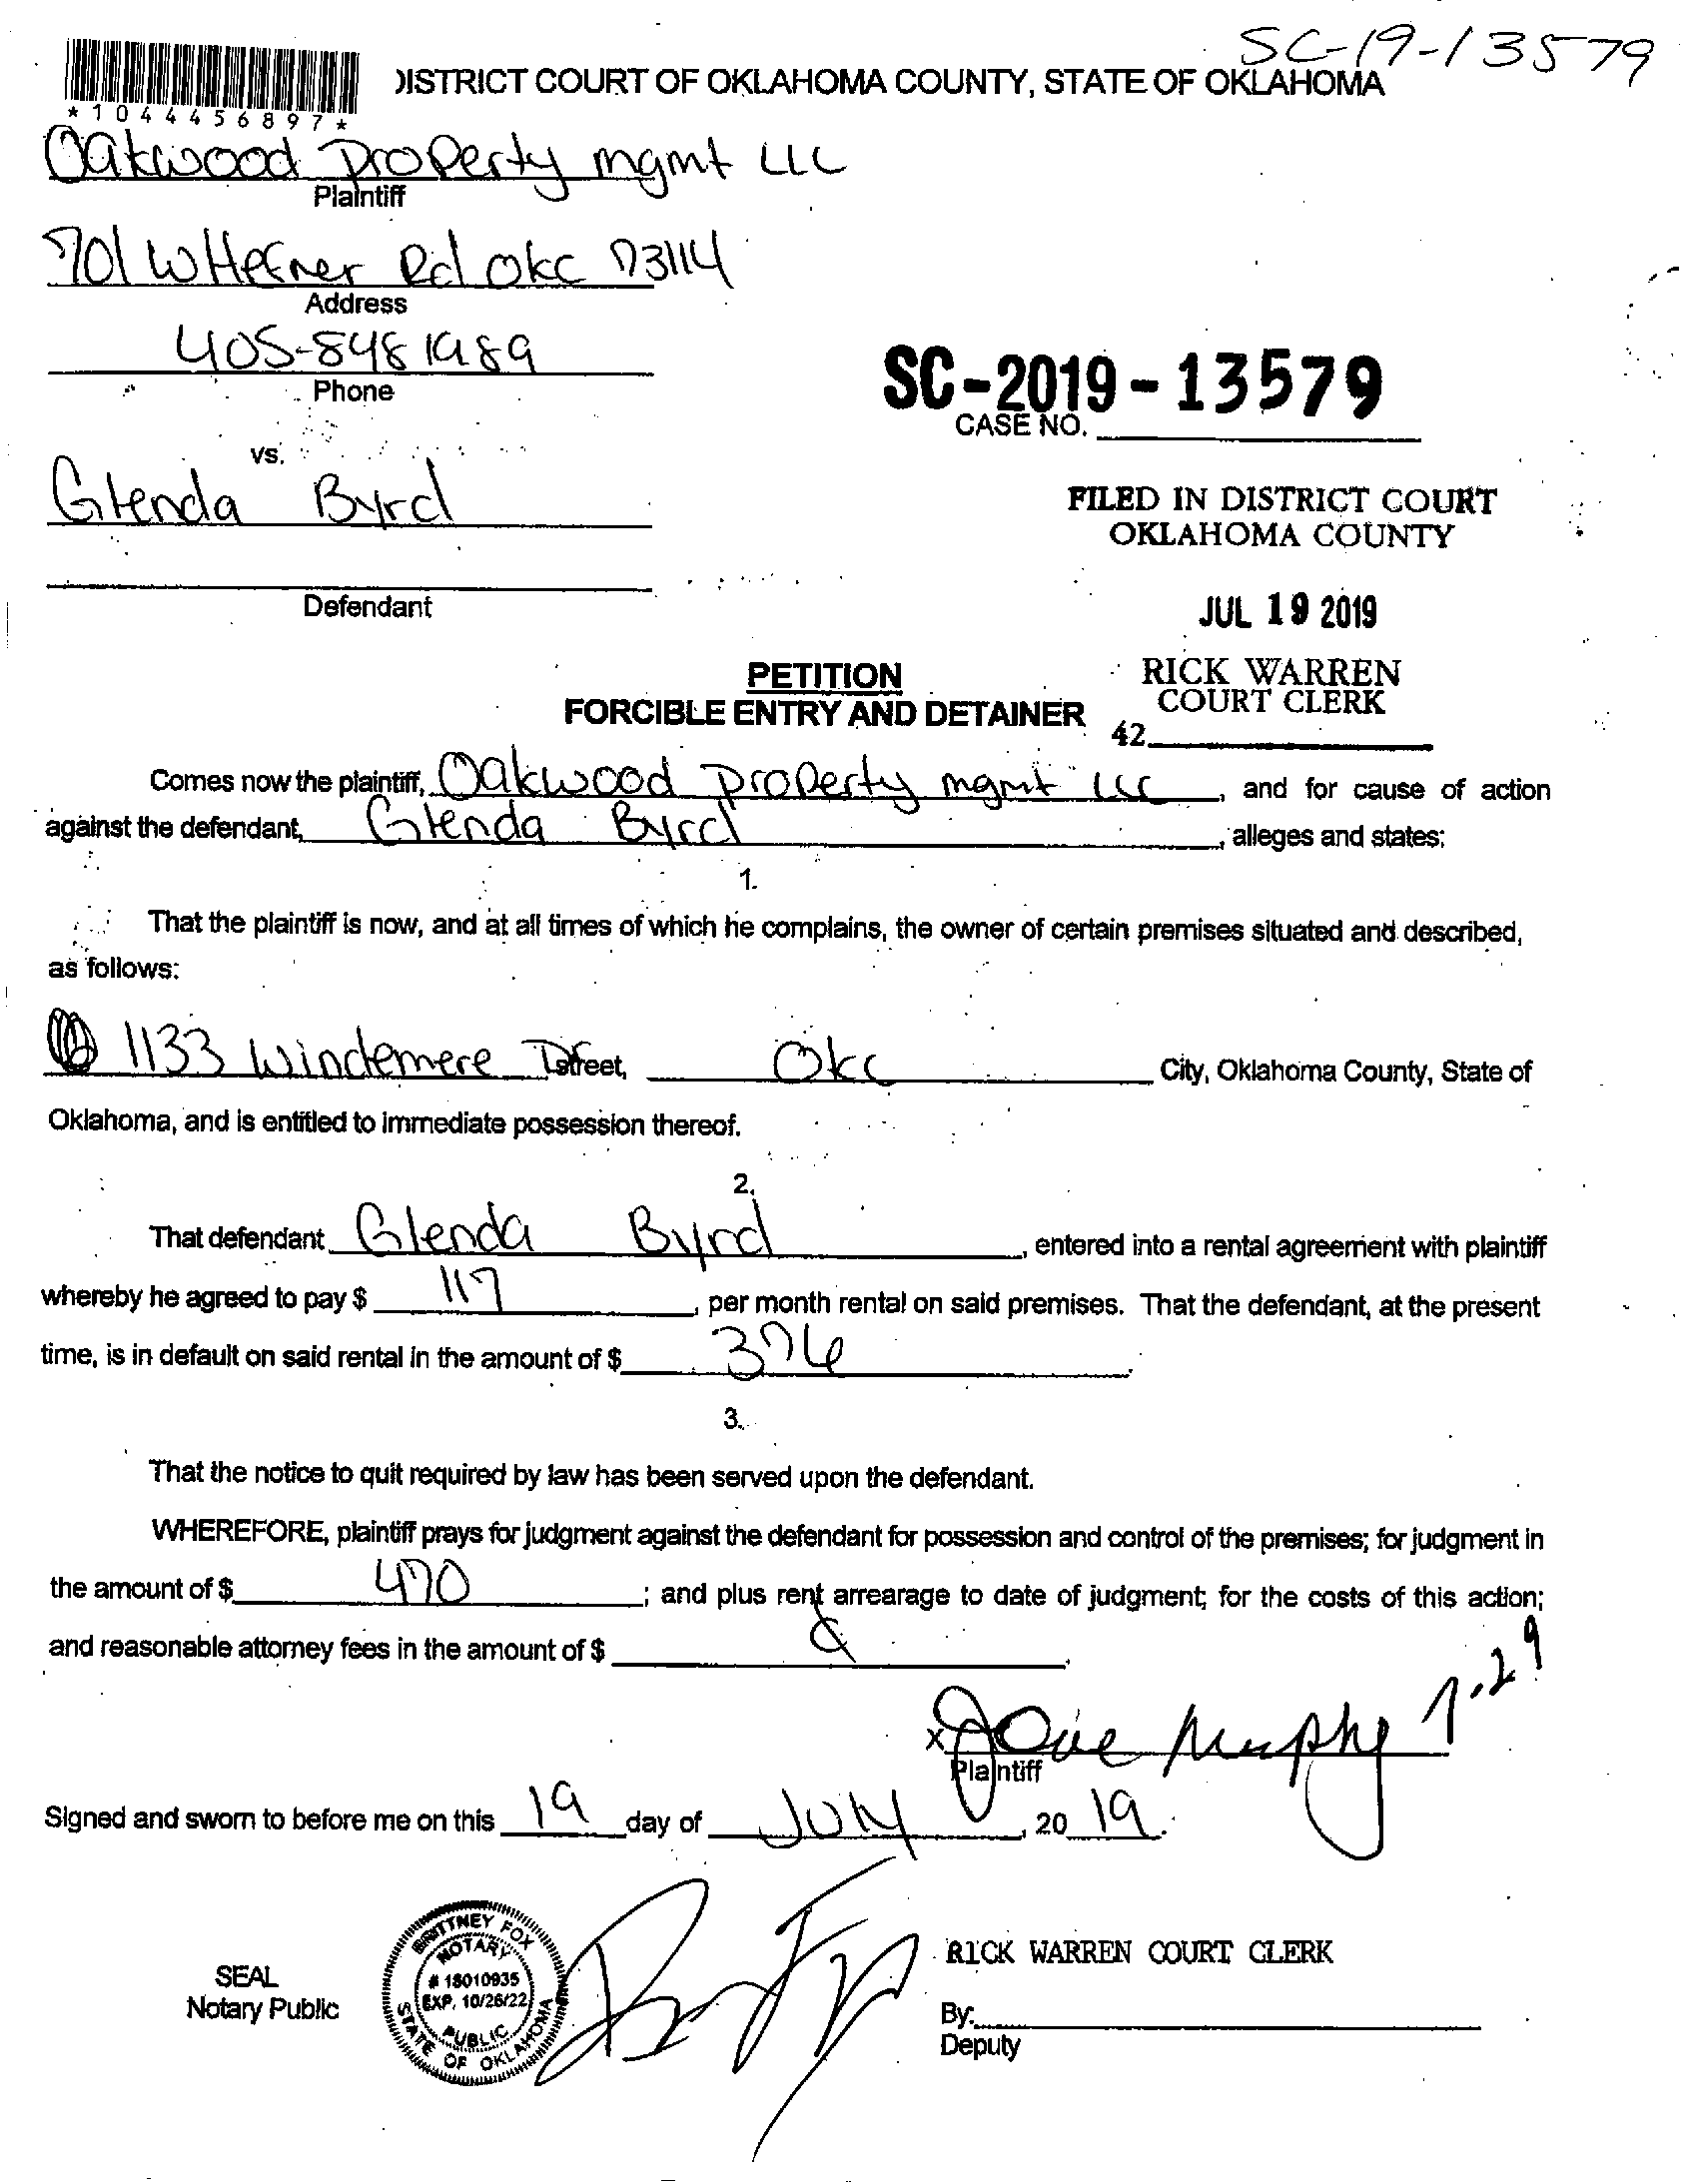 SC-19-13579
DISTRICT COURT OF OKLAHOMA COUNTY, STATE OF OKLAHOMA
*1044456897*
Oakwood Property mgmt LLC
Plaintiff
701 W Hefner Rd OKC 73114
Address
405-848 1989
Phone
SC-2019-13579
CASE NO.
vs.
Glenda Byrd
FILED IN DISTRICT COURT
OKLAHOMA COUNTY
Defendant
JUL 19 2019
PETITION
RICK WARREN
COURT CLERK
FORCIBLE ENTRY AND DETAINER
42
Comes now the plaintiff, Oakwood Property mgmt LLC, and for cause of action
against the defendant, Glenda Byrd, alleges and states:
1.
That the plaintiff is now, and at all times of which he complains, the owner of certain premises situated and described,
as follows:
1133 Windemere Street, OKC City, Oklahoma County, State of
Oklahoma, and is entitled to immediate possession thereof.
2.
That defendant Glenda Byrd, entered into a rental agreement with plaintiff
whereby he agreed to pay $ 117, per month rental on said premises. That the defendant, at the present
time, is in default on said rental in the amount of $ 376.
3.
That the notice to quit required by law has been served upon the defendant.
WHEREFORE, plaintiff prays for judgment against the defendant for possession and control of the premises; for judgment in
the amount of $ 470; and plus rent arrearage to date of judgment; for the costs of this action;
and reasonable attorney fees in the amount of $
x Murphy 7-29
Plaintiff
Signed and sworn to before me on this 19 day of July, 20 19.
SEAL
Notary Public
BRITTNEY FOX
NOTARY
# 18010935
EXP. 10/26/22
PUBLIC
STATE OF OKLAHOMA
RICK WARREN COURT CLERK
By:
Deputy